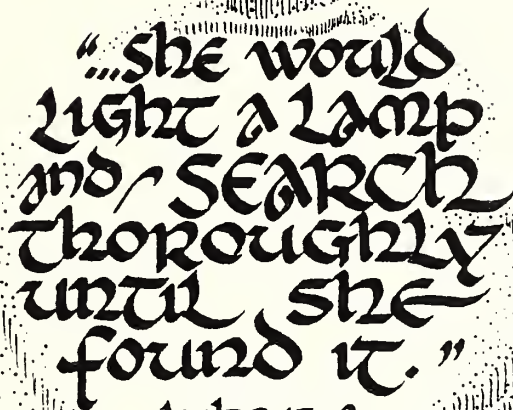 "...She would
Light a Lamp
and SEARCh
thoroughly
until she
found it."